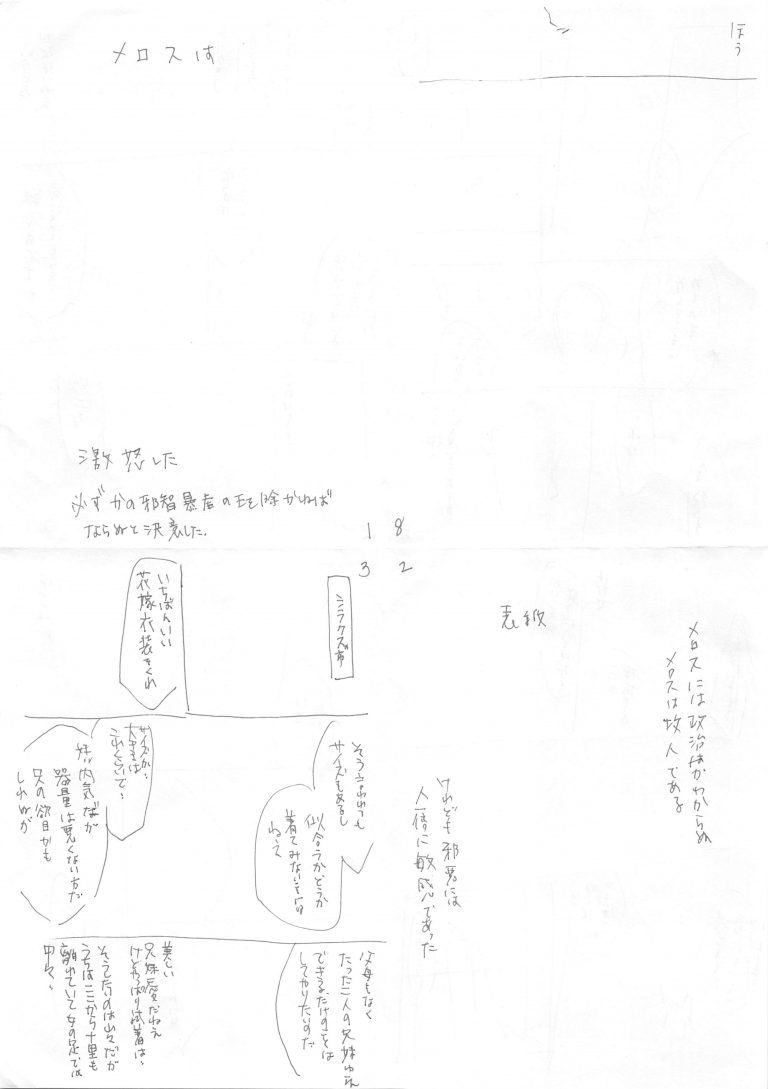 ほう
メロスは
激怒した
必ずかの邪智暴虐の王を除かねば
ならぬと決意した.
1 8
3 2
表紙
メロスには政治はわからぬ
メロスは牧人である
けれども邪悪には
人一倍に敏感であった
シラクス市
いちばんいい
花嫁衣装をくれ
そう言われても
サイズもあるし
似合うかどうか
着てみないことには
ねえ
サイズか…
大きさは
これくらいで…
妹は内気だが
器量は悪くない方だ
兄の欲目かも
しれぬが
父母もなく
たった二人の兄妹ゆえ
できるだけのことは
してやりたいのだ
美しい
兄妹愛だねえ
けどやっぱり試着は…
そうしたいのは山々だが
うちはここから十里も
離れていて女の足では
中々…